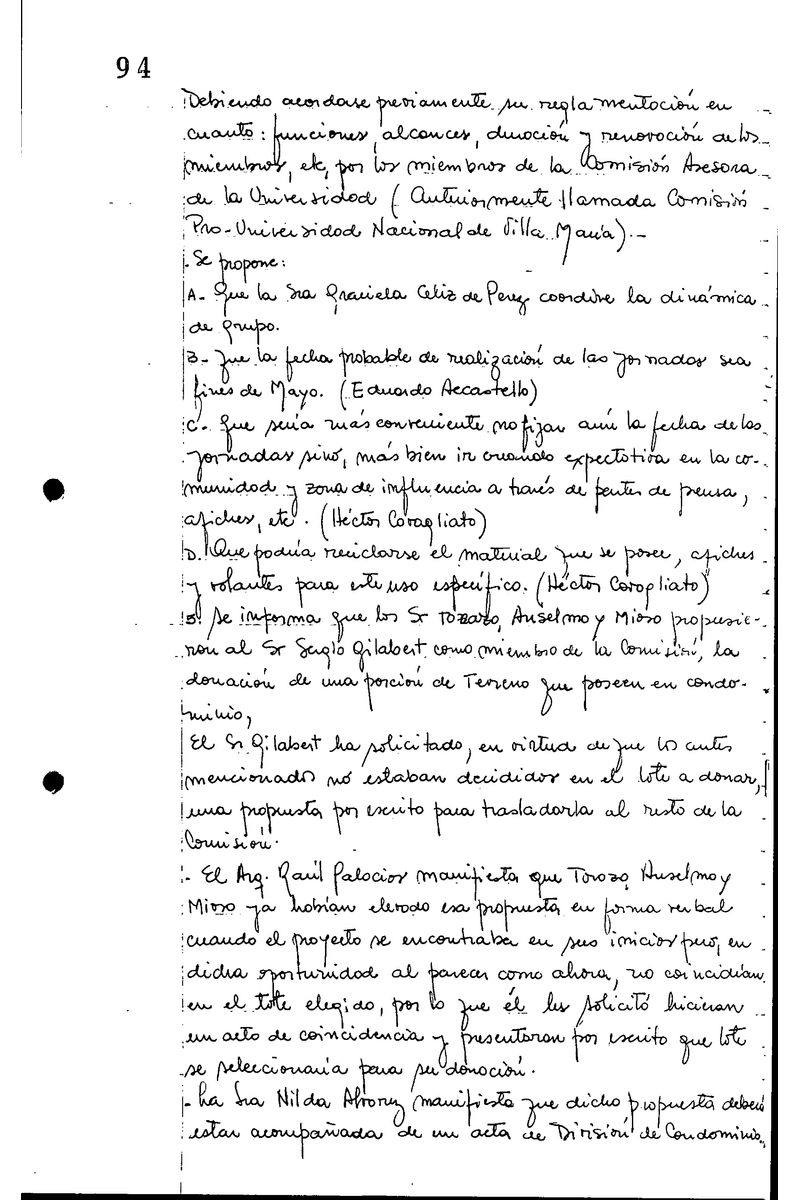 94
Debiendo acordarse previamente su reglamentación en
cuanto: funciones, alcances, duración y renovación de los
miembros, etc, por los miembros de la Comisión Asesora
de la Universidad (Anteriormente llamada Comisión
Pro-Universidad Nacional de Villa María).-
.Se propone:
A- Que la Sra Graciela Celiz de Perez coordine la dinámica
de grupo.
B- Que la fecha probable de realización de las jornadas sea
fines de Mayo. (Eduardo Accastello)
C. Que sería más conveniente no fijar aún la fecha de las
jornadas sino, más bien ir creando expectativa en la co-
munidad y zona de influencia a través de partes de prensa,
afiches, etc. (Héctor Cavagliato)
D. Que podría reciclarse el material que se posee, afiches
y volantes para este uso específico. (Héctor Cavagliato)
Se informa que los Sr Anselmo y Mioso propusie-
ron al Sr Sergio Gilabert como miembro de la Comisión, la
donación de una porción de Terreno que poseen en condo-
minio,
El Sr Gilabert ha solicitado, en virtud de que los antes
mencionados no estaban decididos en el lote a donar,
una propuesta por escrito para trasladarla al resto de la
Comisión.
.- El Arq. Raúl Palacios manifiesta que Anselmo y
Mioso ya habían elevado esa propuesta en forma verbal
cuando el proyecto se encontraba en sus inicios pero, en
dicha oportunidad al parecer como ahora, no coincidían
en el lote elegido, por lo que él les solicitó hicieran
un acto de coincidencia y presentaran por escrito que lote
se seleccionaría para su donación.
.- La Sra Nilda Alvarez manifiesta que dicha propuesta deberá
estar acompañada de un acta de División de Condominio.